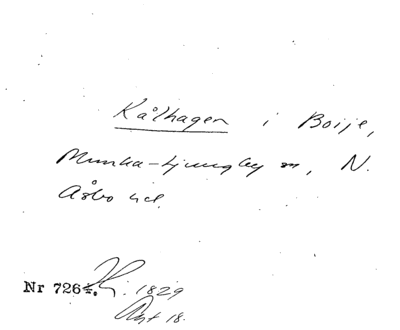 Kålhagen i Boije,
Munka-Ljungby sn, N.
Åsbo hd.
Nr 726 1829
Akt 18.